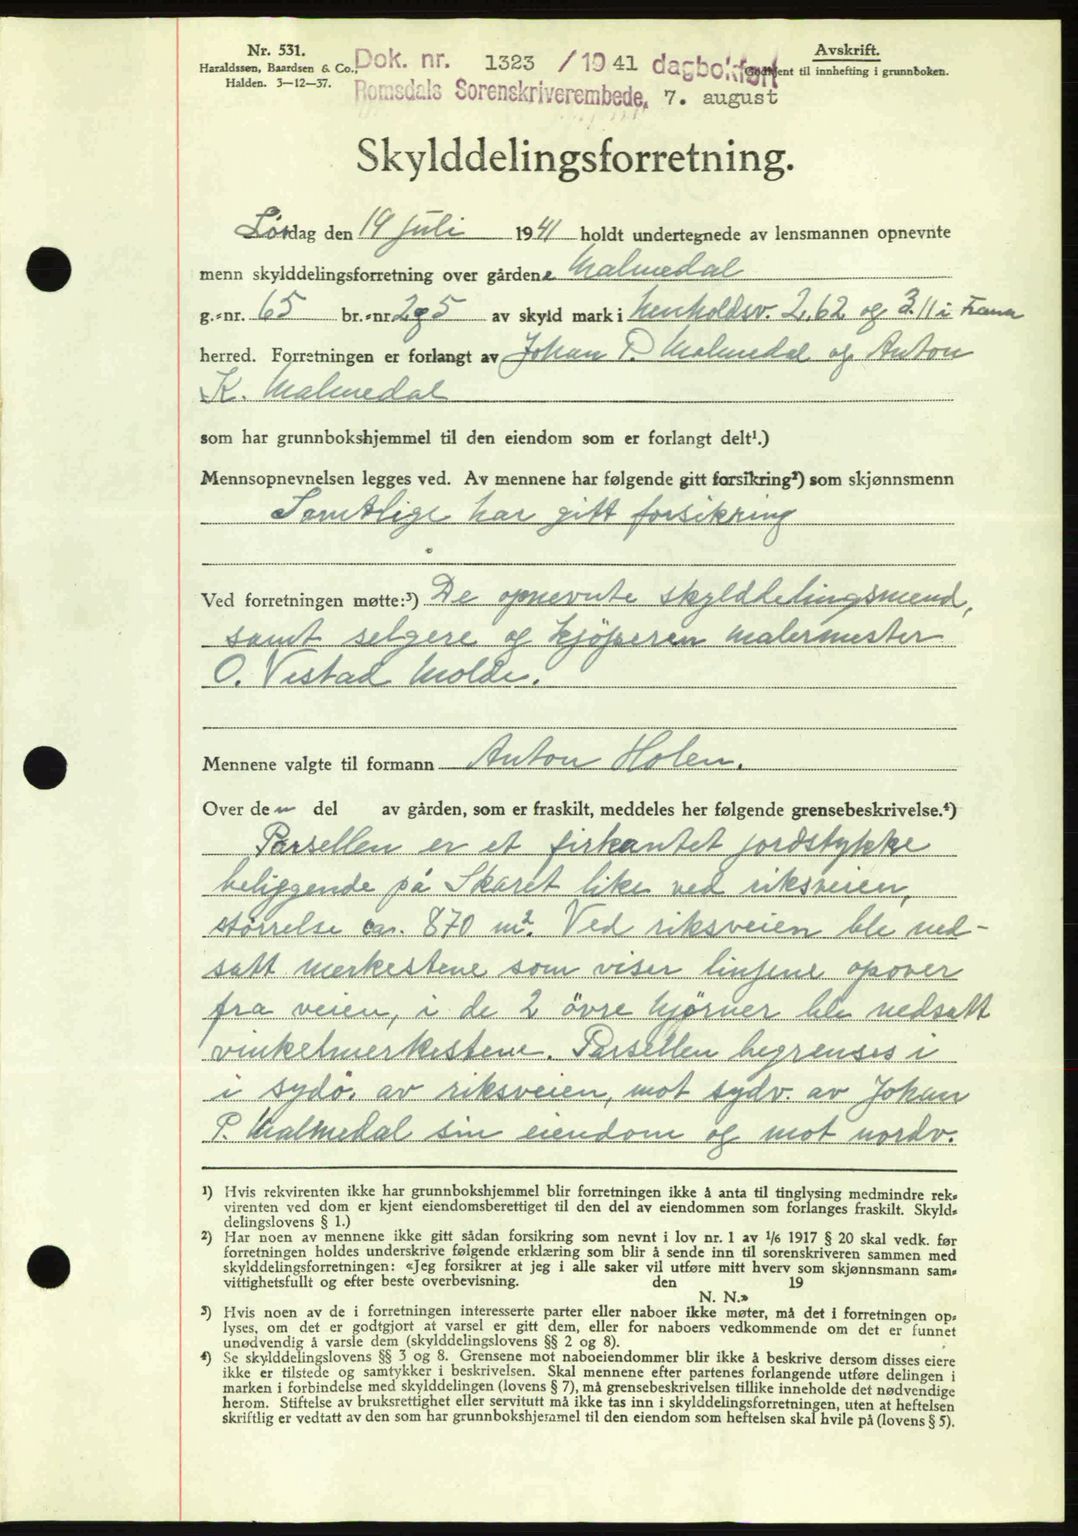 Nr. 531.
Haraldssen, Baardsen & Co.,
Halden. 3—12—37.
Dok. nr. 1323 /1941 dagbokført
Romsdals Sorenskriverembede, 7. august
Avskrift.
Godkjent til innhefting i grunnboken.
Skylddelingsforretning.
Lørdag den 19 juli 1941 holdt undertegnede av lensmannen opnevnte
menn skylddelingsforretning over gårdene Malmedal
g.-nr. 65 br.-nr. 2 og 5 av skyld mark i henholdsv. 2,62 og 3.11 i Fræna
herred. Forretningen er forlangt av Johan P. Malmedal og Anton
K. Malmedal
som har grunnbokshjemmel til den eiendom som er forlangt delt¹.)
Mennsopnevnelsen legges ved. Av mennene har følgende gitt forsikring²) som skjønnsmenn
Samtlige har gitt forsikring
Ved forretningen møtte:³) De opnevnte skylddelingsmend,
samt selgere og kjöperen malermester
O. Vestad Molde.
Mennene valgte til formann Anton Holen.
Over den del av gården, som er fraskilt, meddeles her følgende grensebeskrivelse.⁴)
Parsellen er et firkantet jordstykke
beliggende på Skaret like ved riksveien,
störrelse ca. 870 m². Ved riksveien ble ned-
satt merkestene som viser linjene opover
fra veien, i de 2 övre hjörner ble nedsatt
vinkelmerkestene. Parsellen begrenses i
i sydö. av riksveien, mot sydv. av Johan
P. Malmedal sin eiendom og mot nordv.
¹) Hvis rekvirenten ikke har grunnbokshjemmel blir forretningen ikke å anta til tinglysing medmindre rek-
virenten ved dom er kjent eiendomsberettiget til den del av eiendommen som forlanges fraskilt. Skyld-
delingslovens § 1.)
²) Har noen av mennene ikke gitt sådan forsikring som nevnt i lov nr. 1 av 1/6 1917 § 20 skal vedk. før
forretningen holdes underskrive følgende erklæring som blir å sende inn til sorenskriveren sammen med
skylddelingsforretningen: «Jeg forsikrer at jeg i alle saker vil utføre mitt hverv som skjønnsmann sam-
vittighetsfullt og efter beste overbevisning. den 19
N. N.»
³) Hvis noen av de i forretningen interesserte parter eller naboer ikke møter, må det i forretningen op-
lyses, om det er godtgjort at varsel er gitt dem, eller for naboers vedkommende om det er funnet
unødvendig å varsle dem (skylddelingslovens §§ 2 og 8).
⁴) Se skylddelingslovens §§ 3 og 8. Grensene mot naboeiendommer blir ikke å beskrive dersom disses eiere
ikke er tilstede og samtykker i beskrivelsen. Skal mennene efter partenes forlangende utføre delingen i
marken i forbindelse med skylddelingen (lovens § 7), må grensebeskrivelsen tillike inneholde det nødvendige
herom. Stiftelse av bruksrettighet eller servitutt må ikke tas inn i skylddelingsforretningen, uten at heftelsen
skriftlig er vedtatt av den som har grunnbokshjemmel til den eiendom som heftelsen skal hvile på (lovens § 5).